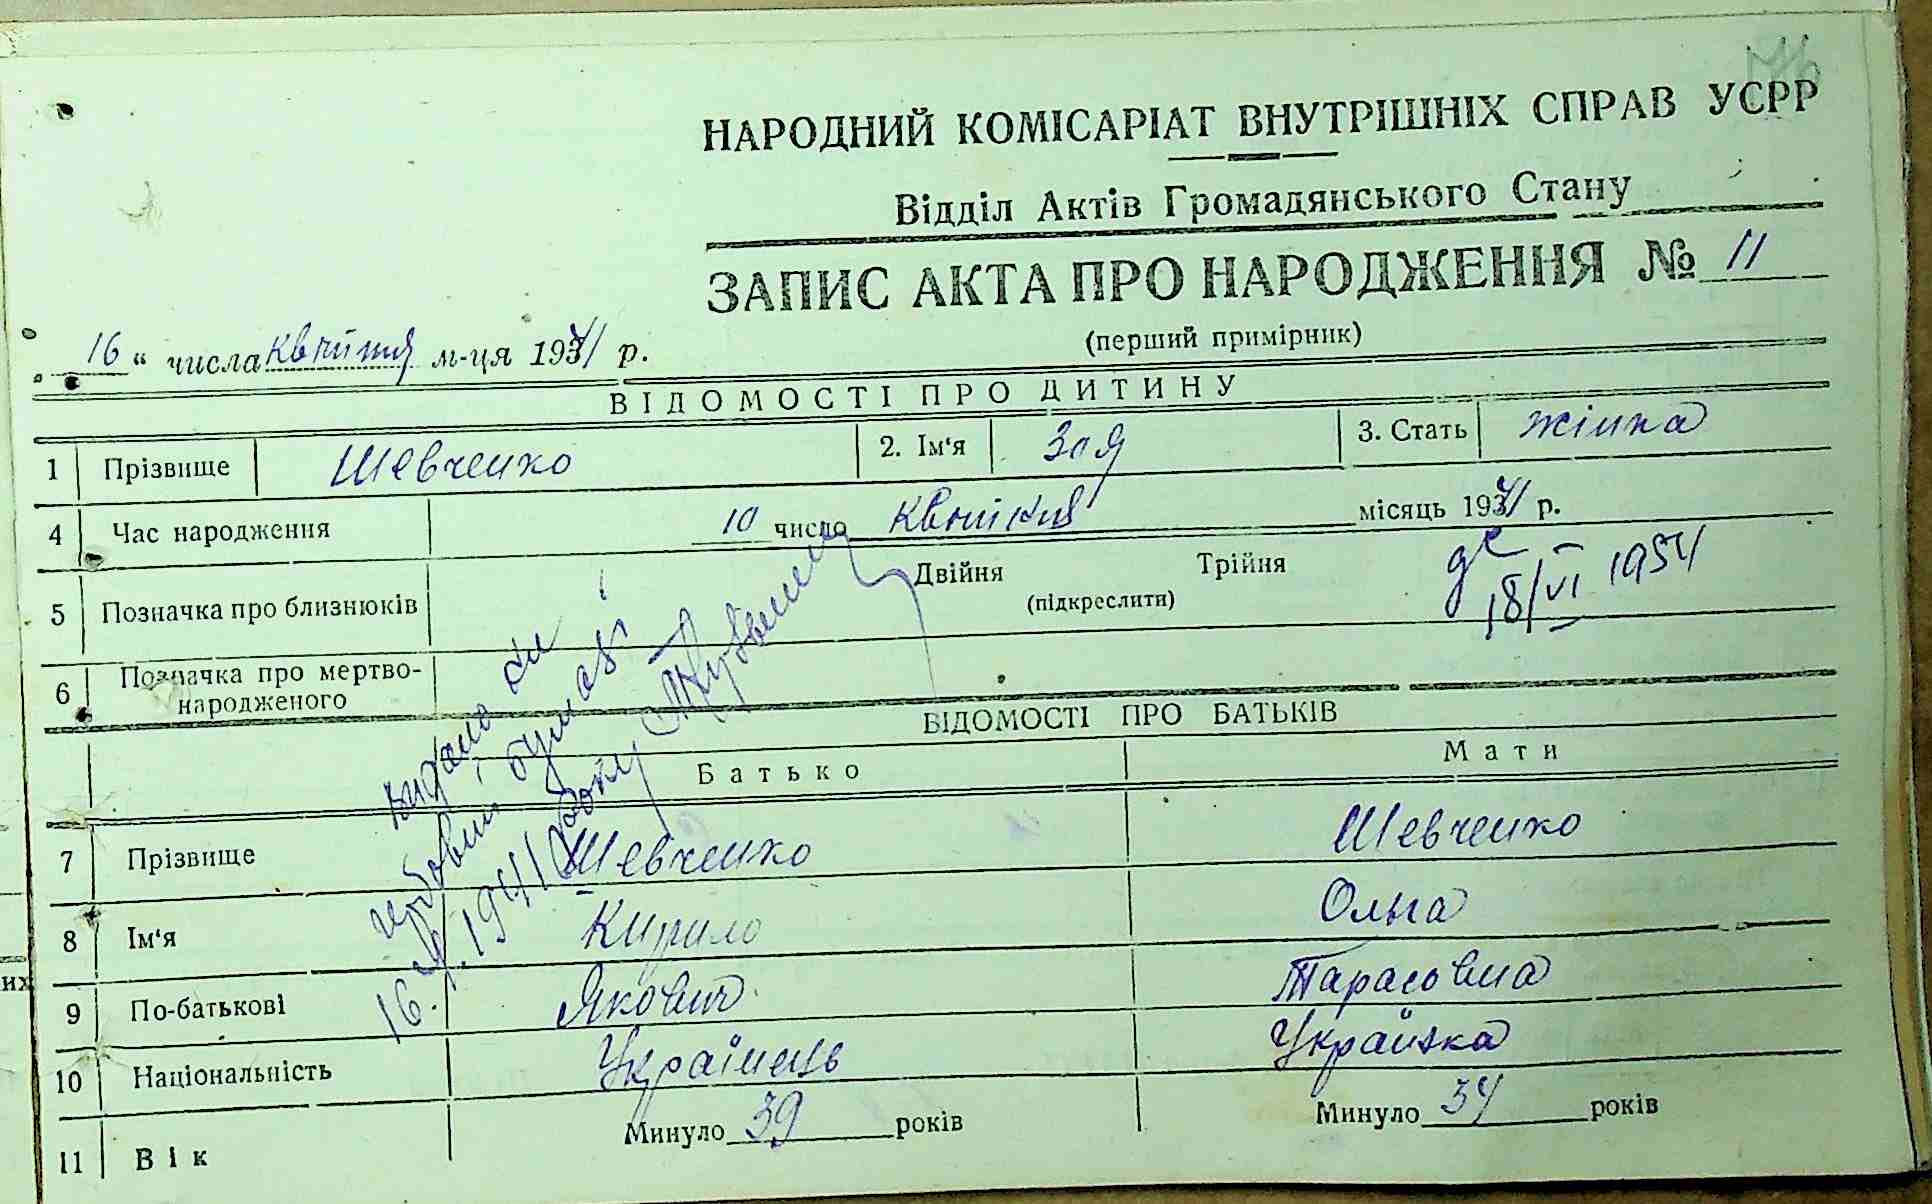 НАРОДНИЙ КОМІСАРІАТ ВНУТРІШНІХ СПРАВ УСРР
Відділ Актів Громадянського Стану
ЗАПИС АКТА ПРО НАРОДЖЕННЯ № 11
(перший примірник)
„ 16 “ числа квітня м-ця 1941 р.
ВІДОМОСТІ ПРО ДИТИНУ
1 Прізвище Шевченко 2. Ім‘я Зоя 3. Стать жінка
4 Час народження 10 число квітня місяць 1941 р.
5 Позначка про близнюків Двійня Трійня
(підкреслити)
18/VI 1954
6 Позначка про мертво-
народженого
видано
16.IV.1941 року
ВІДОМОСТІ ПРО БАТЬКІВ
Батько Мати
7 Прізвище Шевченко Шевченко
8 Ім‘я Кирило Ольга
9 По-батькові Якович Тарасовна
10 Національність Українець Українка
11 Вік Минуло 39 років Минуло 34 років
их